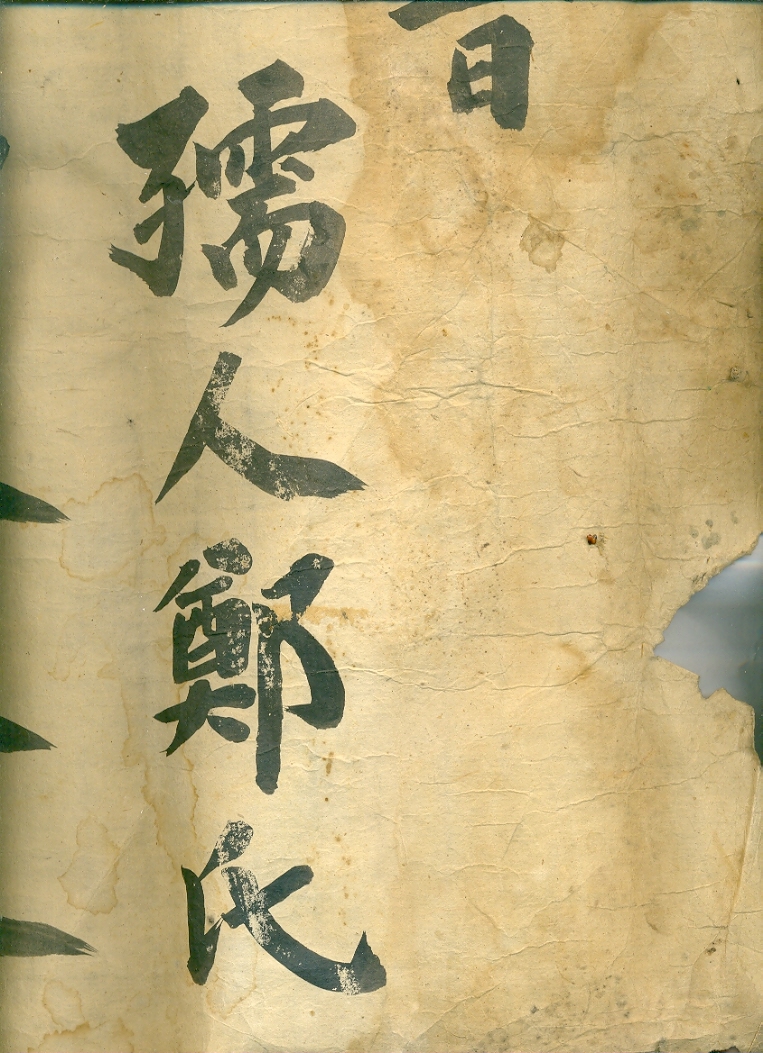 孺人鄭氏